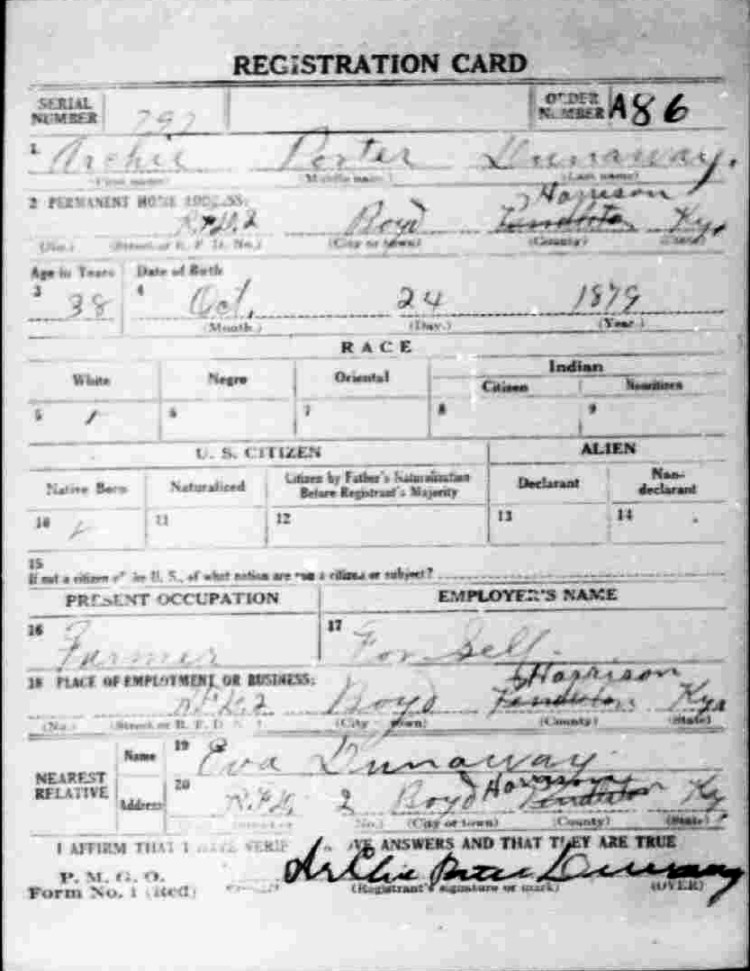 REGISTRATION CARD
SERIAL NUMBER 797 ORDER NUMBER A86
1 Archie Porter Dunaway.
(First name) (Middle name) (Last name)
2 PERMANENT HOME ADDRESS:
Harrison
R.F.D. 2 Boyd Pendleton Ky.
(No.) (Street or R. F. D. No.) (City or town) (County) (State)
Age in Years Date of Birth
3 38 4 Oct. 24 1879
(Month.) (Day.) (Year.)
RACE
White Negro Oriental Indian
Citizen Noncitizen
5 6 7 8 9
U. S. CITIZEN ALIEN
Native Born Naturalized Citizen by Father's Naturalization Before Registrant's Majority Declarant Non-declarant
10 11 12 13 14
15
If not a citizen of the U. S., of what nation are you a citizen or subject?
PRESENT OCCUPATION EMPLOYER'S NAME
16 Farmer 17 For Self.
18 PLACE OF EMPLOYMENT OR BUSINESS:
Harrison
R.F.D. 2 Boyd Pendleton Ky.
(No.) (Street or R. F. D. No.) (City or town) (County) (State)
NEAREST RELATIVE Name 19 Eva Dunaway.
Address 20 R.F.D. 2 Boyd Harrison Pendleton Ky
(No.) (City or town) (County) (State)
I AFFIRM THAT I HAVE VERIF VE ANSWERS AND THAT THEY ARE TRUE
P. M. G. O.
Form No. 1 (Red) Archie Porter Dunaway
(Registrant's signature or mark) (OVER)